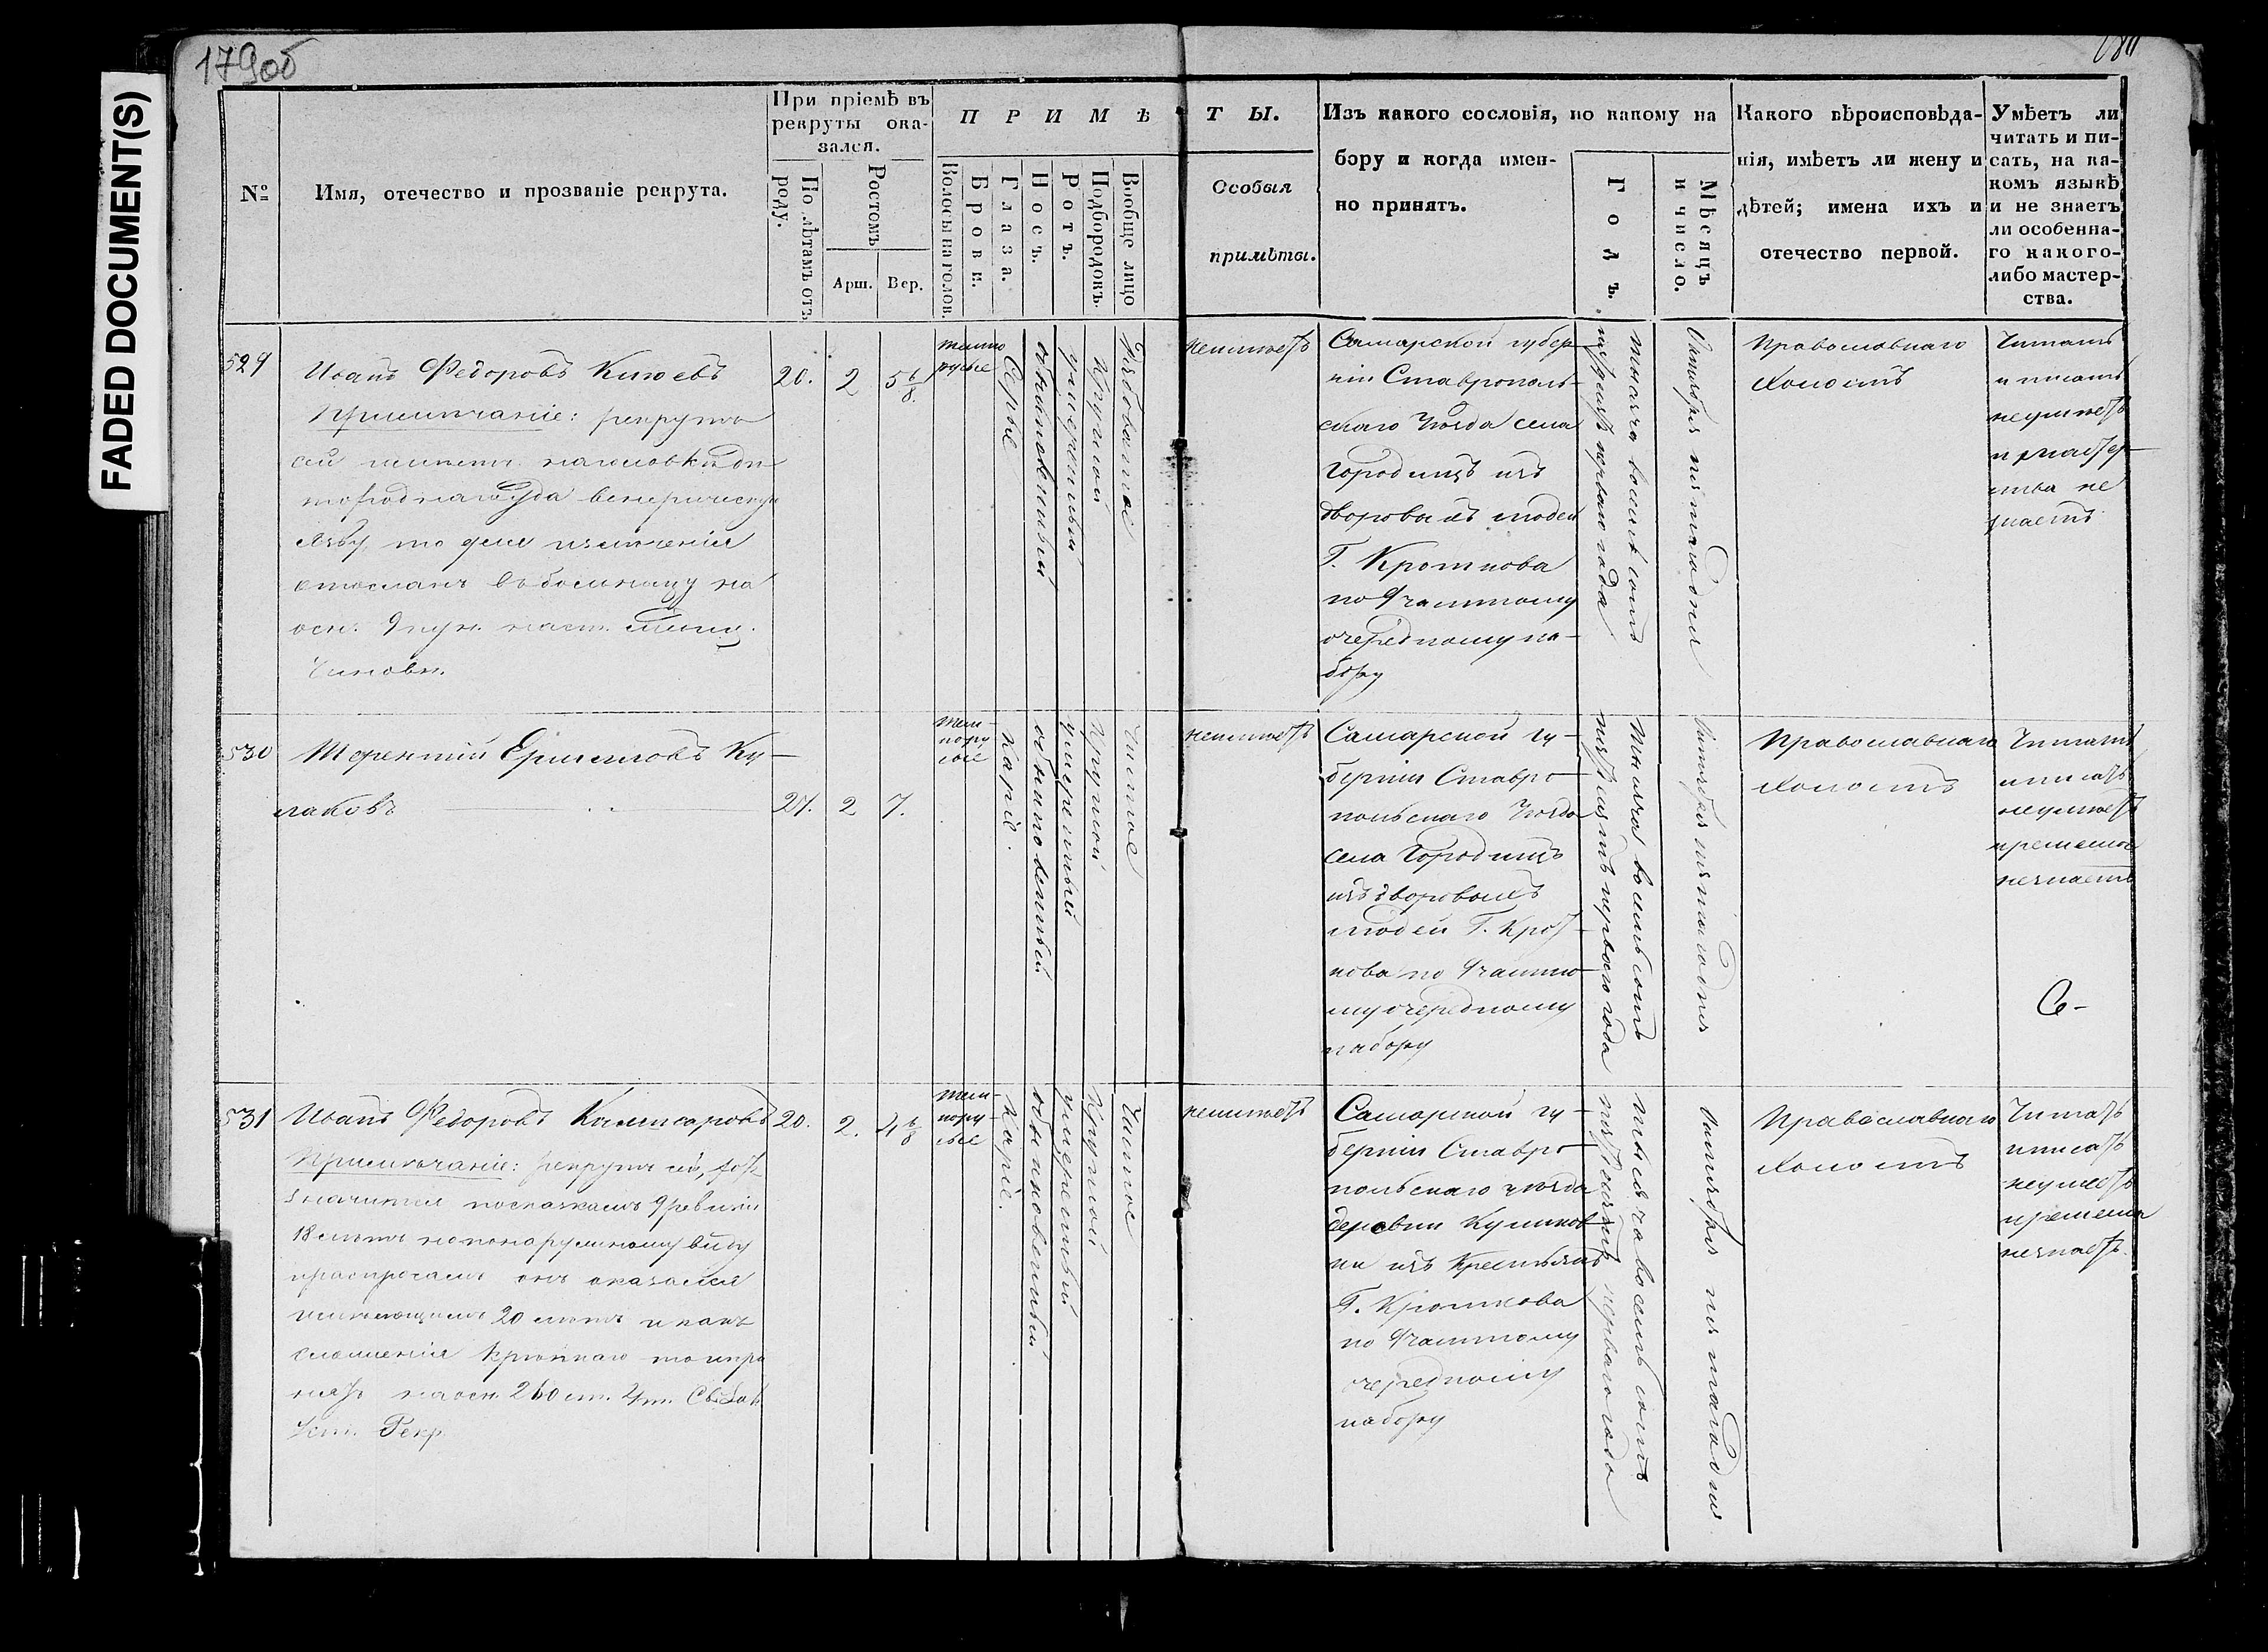 FADED DOCUMENT(S)
179об
180
№
Имя, отечество и прозваніе рекрута.
При пріемѣ въ
рекруты ока-
зался.
По лѣтамъ отъ
роду.
Ростомъ
Арш.
Вер.
П Р И М Ѣ
Т Ы.
Волосы на голов.
Брови.
Глаза.
Носъ.
Ротъ.
Подбородокъ.
Вообще лицо
Особыя
примѣты.
Изъ какого сословія, по какому на
бору и когда имен-
но принятъ.
Годъ.
Мѣсяцъ
и число.
Какого вѣроисповѣда-
нія, имѣетъ ли жену и
дѣтей; имена ихъ и
отечество первой.
Умѣетъ ли
читать и пи-
сать, на ка-
комъ языкѣ
и не знаетъ
ли особенна-
го какого-
либо мастер-
ства.
529
Иванъ Федоровъ
Примѣчаніе: рекрутъ
сей имѣетъ на головкѣ дѣ-
тороднаго уда венерическую
язву, то для излеченія
отосланъ въ больницу на
осн.
20.
2
5 6/8.
темно
русые
Сѣрые
обыкновенный
умѣренный
Круглой
Рябоватое
неимѣетъ
Самарской губер-
ніи Ставрополь-
скаго Уѣзда села
Городищъ изъ
дворовыхъ людей
Г. Кроткова
по Частному
очередному на-
бору
тысяча восемьсотъ
пятьдесятъ перваго года
Октября пятаго дня
Православнаго
Холостъ
Читать
и писать
неумѣетъ
и мастер-
ства не
знаетъ
530
Терентій Ермиловъ Ку-
лаковъ
21.
2
7.
тем-
нору
сые
Каріе.
обыкновенный
умѣренный
Круглой
Чистое
неимѣетъ
Самарской гу-
берніи Ставро-
польскаго Уѣзда
села Городищъ
изъ дворовыхъ
людей Г. Крот-
кова по Частно-
му очередному
набору
тысяча восемьсотъ
пятьдесятъ перваго года
Октября пятаго дня
Православнаго
Холостъ
Читать
и писать
неумѣетъ
и ремесла
незнаетъ
531
Иванъ Федоровъ Комисаровъ
Примѣчаніе: рекрутъ сей, хотя
значится по сказкамъ 9 ревизіи
18 лѣтъ но по наружному виду
и распросамъ онъ оказался
имѣющимъ 20 лѣтъ и какъ
сложенія крѣпкаго то и при
нятъ на осн. 260 ст. 4 т. Св. Зак.
Уст. Рекр.
20.
2.
4 6/8
тем-
нору
сые
Каріе.
обыкновенный
умѣренный
Круглой
Чистое
неимѣетъ
Самарской гу-
берніи Ставро-
польскаго уѣзда
деревни Куликов-
ки изъ Крестьянъ
Г. Кроткова
по Частному
очередному
набору
тысяча восемьсотъ
пятьдесятъ перваго года
Октября пятаго дня
Православнаго
Холостъ
Читать
и писать
неумѣетъ
и ремесла
незнаетъ.